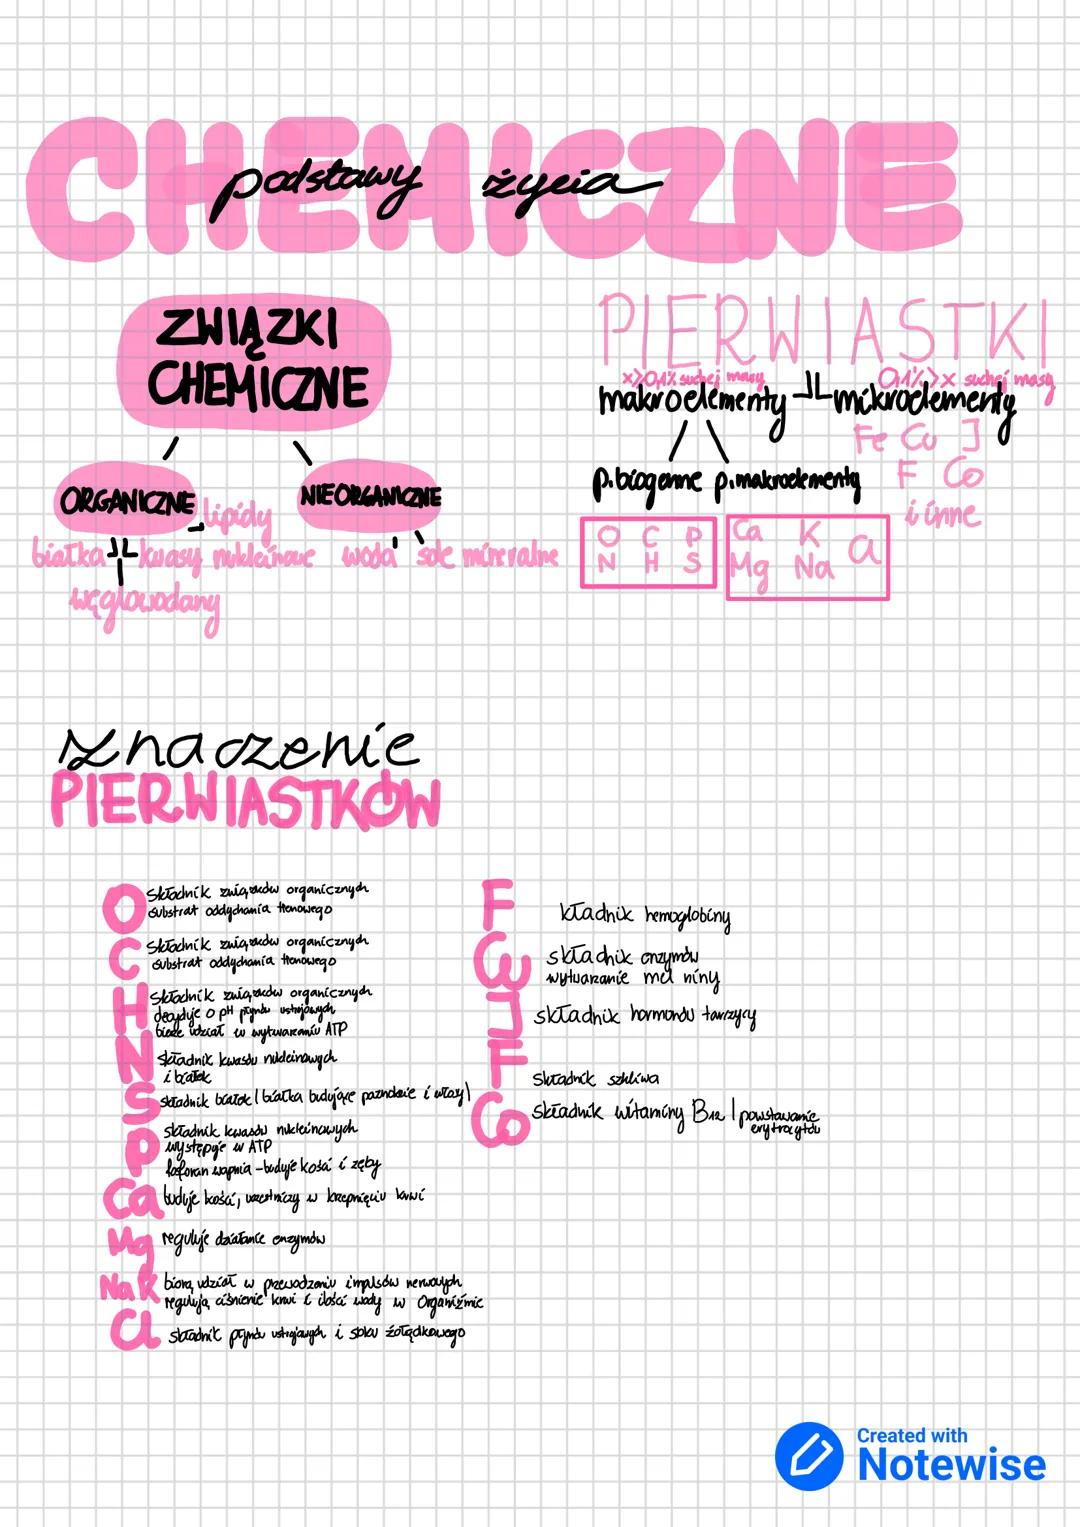 CHEMICZNE
podstawy życia
ZWIĄZKI
CHEMICZNE
ORGANICZNE
lipidy
białka kwasy nukleinowe
węglowodany
NIEORGANICZNE
woda sole mineralne
PIERWIASTKI
x>0,1% suchej masy
makroelementy
0,1%>x suchej masy
mikroelementy
Fe Cu J
F Co
i inne
p.biogenne p.makroelementy
O C P
N H S
Ca K Cl
Mg Na
znaczenie
PIERWIASTKÓW
O składnik związków organicznych
substrat oddychania tlenowego
C składnik związków organicznych
substrat oddychania tlenowego
H składnik związków organicznych
decyduje o pH płynów ustrojowych
bierze udział w wytwarzaniu ATP
N składnik kwasów nukleinowych
i białek
S składnik białek (białka budujące paznokcie i włosy)
P składnik kwasów nukleinowych
występuje w ATP
fosforan wapnia - buduje kości i zęby
Ca buduje kości, uczestniczy w krzepnięciu krwi
Mg reguluje działanie enzymów
Na K biorą udział w przewodzeniu impulsów nerwowych
regulują ciśnienie krwi i ilości wody w organizmie
Cl składnik płynów ustrojowych i soku żołądkowego
F kładnik hemoglobiny
Cu składnik enzymów
wytwarzanie mel niny
J składnik hormonów tarczycy
F składnik szkliwa
Co składnik witaminy B12 | powstawanie
erytrocytów
Created with
Notewise